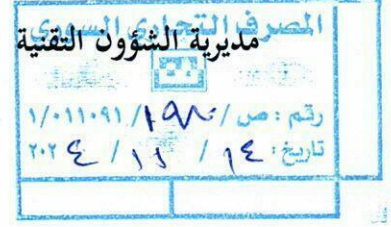 المصرف التجاري السوري
مديرية الشؤون التقنية
رقم : ص / ١٩٨٠ / ١/٠١١٠٩١
تاريخ : ١٤ / ١١ / ٢٠٢٤